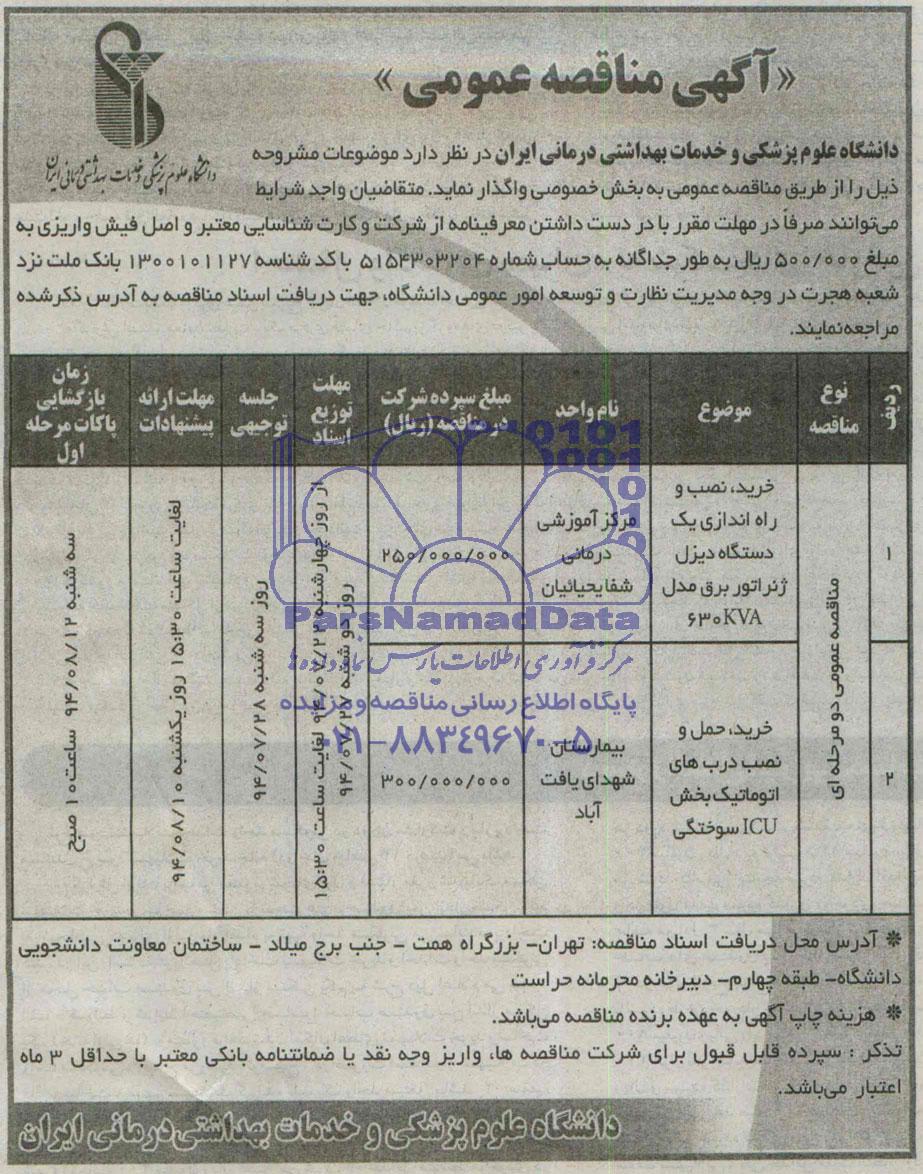 «آگهی مناقصه عمومی»
دانشگاه علوم پزشکی و خدمات بهداشتی درمانی ایران
دانشگاه علوم پزشکی و خدمات بهداشتی درمانی ایران در نظر دارد موضوعات مشروحه
ذیل را از طریق مناقصه عمومی به بخش خصوصی واگذار نماید. متقاضیان واجد شرایط
می‌توانند صرفاً در مهلت مقرر با در دست داشتن معرفینامه از شرکت و کارت شناسایی معتبر و اصل فیش واریزی به
مبلغ ۵۰۰/۰۰۰ ریال به طور جداگانه به حساب شماره ۵۱۵۴۳۰۳۲۰۴ با کد شناسه ۱۳۰۰۱۰۱۱۲۷ بانک ملت نزد
شعبه هجرت در وجه مدیریت نظارت و توسعه امور عمومی دانشگاه، جهت دریافت اسناد مناقصه به آدرس ذکرشده
مراجعه‌نمایند.
ردیف
نوع
مناقصه
موضوع
نام واحد
مبلغ سپرده شرکت
در مناقصه (ریال)
مهلت
توزیع
اسناد
جلسه
توجیهی
مهلت ارائه
پیشنهادات
زمان
بازگشایی
پاکات مرحله
اول
۱
مناقصه عمومی دو مرحله ای
خرید، نصب و
راه اندازی یک
دستگاه دیزل
ژنراتور برق مدل
۶۳۰KVA
مرکز آموزشی
درمانی
شفایحیائیان
۲۵۰/۰۰۰/۰۰۰
از روز چهارشنبه ۹۴/۰۷/۲۲ لغایت ساعت ۱۵:۳۰
روز دو شنبه ۹۴/۰۷/۲۷
روز سه شنبه ۹۴/۰۷/۲۸
لغایت ساعت ۱۵:۳۰ روز یکشنبه ۹۴/۰۸/۱۰
سه شنبه ۹۴/۰۸/۱۲ ساعت ۱۰ صبح
۲
خرید، حمل و
نصب درب های
اتوماتیک بخش
ICU سوختگی
بیمارستان
شهدای یافت
آباد
۳۰۰/۰۰۰/۰۰۰
ParsNamadData
مرکز فرآوری اطلاعات پارس نماد داده ها
پایگاه اطلاع رسانی مناقصه و مزایده
۰۲۱-۸۸۳۴۹۶۷۰-۵
* آدرس محل دریافت اسناد مناقصه: تهران- بزرگراه همت - جنب برج میلاد - ساختمان معاونت دانشجویی
دانشگاه- طبقه چهارم- دبیرخانه محرمانه حراست
* هزینه چاپ آگهی به عهده برنده مناقصه می‌باشد.
تذکر : سپرده قابل قبول برای شرکت مناقصه ها، واریز وجه نقد یا ضمانتنامه بانکی معتبر با حداقل ۳ ماه
اعتبار می‌باشد.
دانشگاه علوم پزشکی و خدمات بهداشتی درمانی ایران